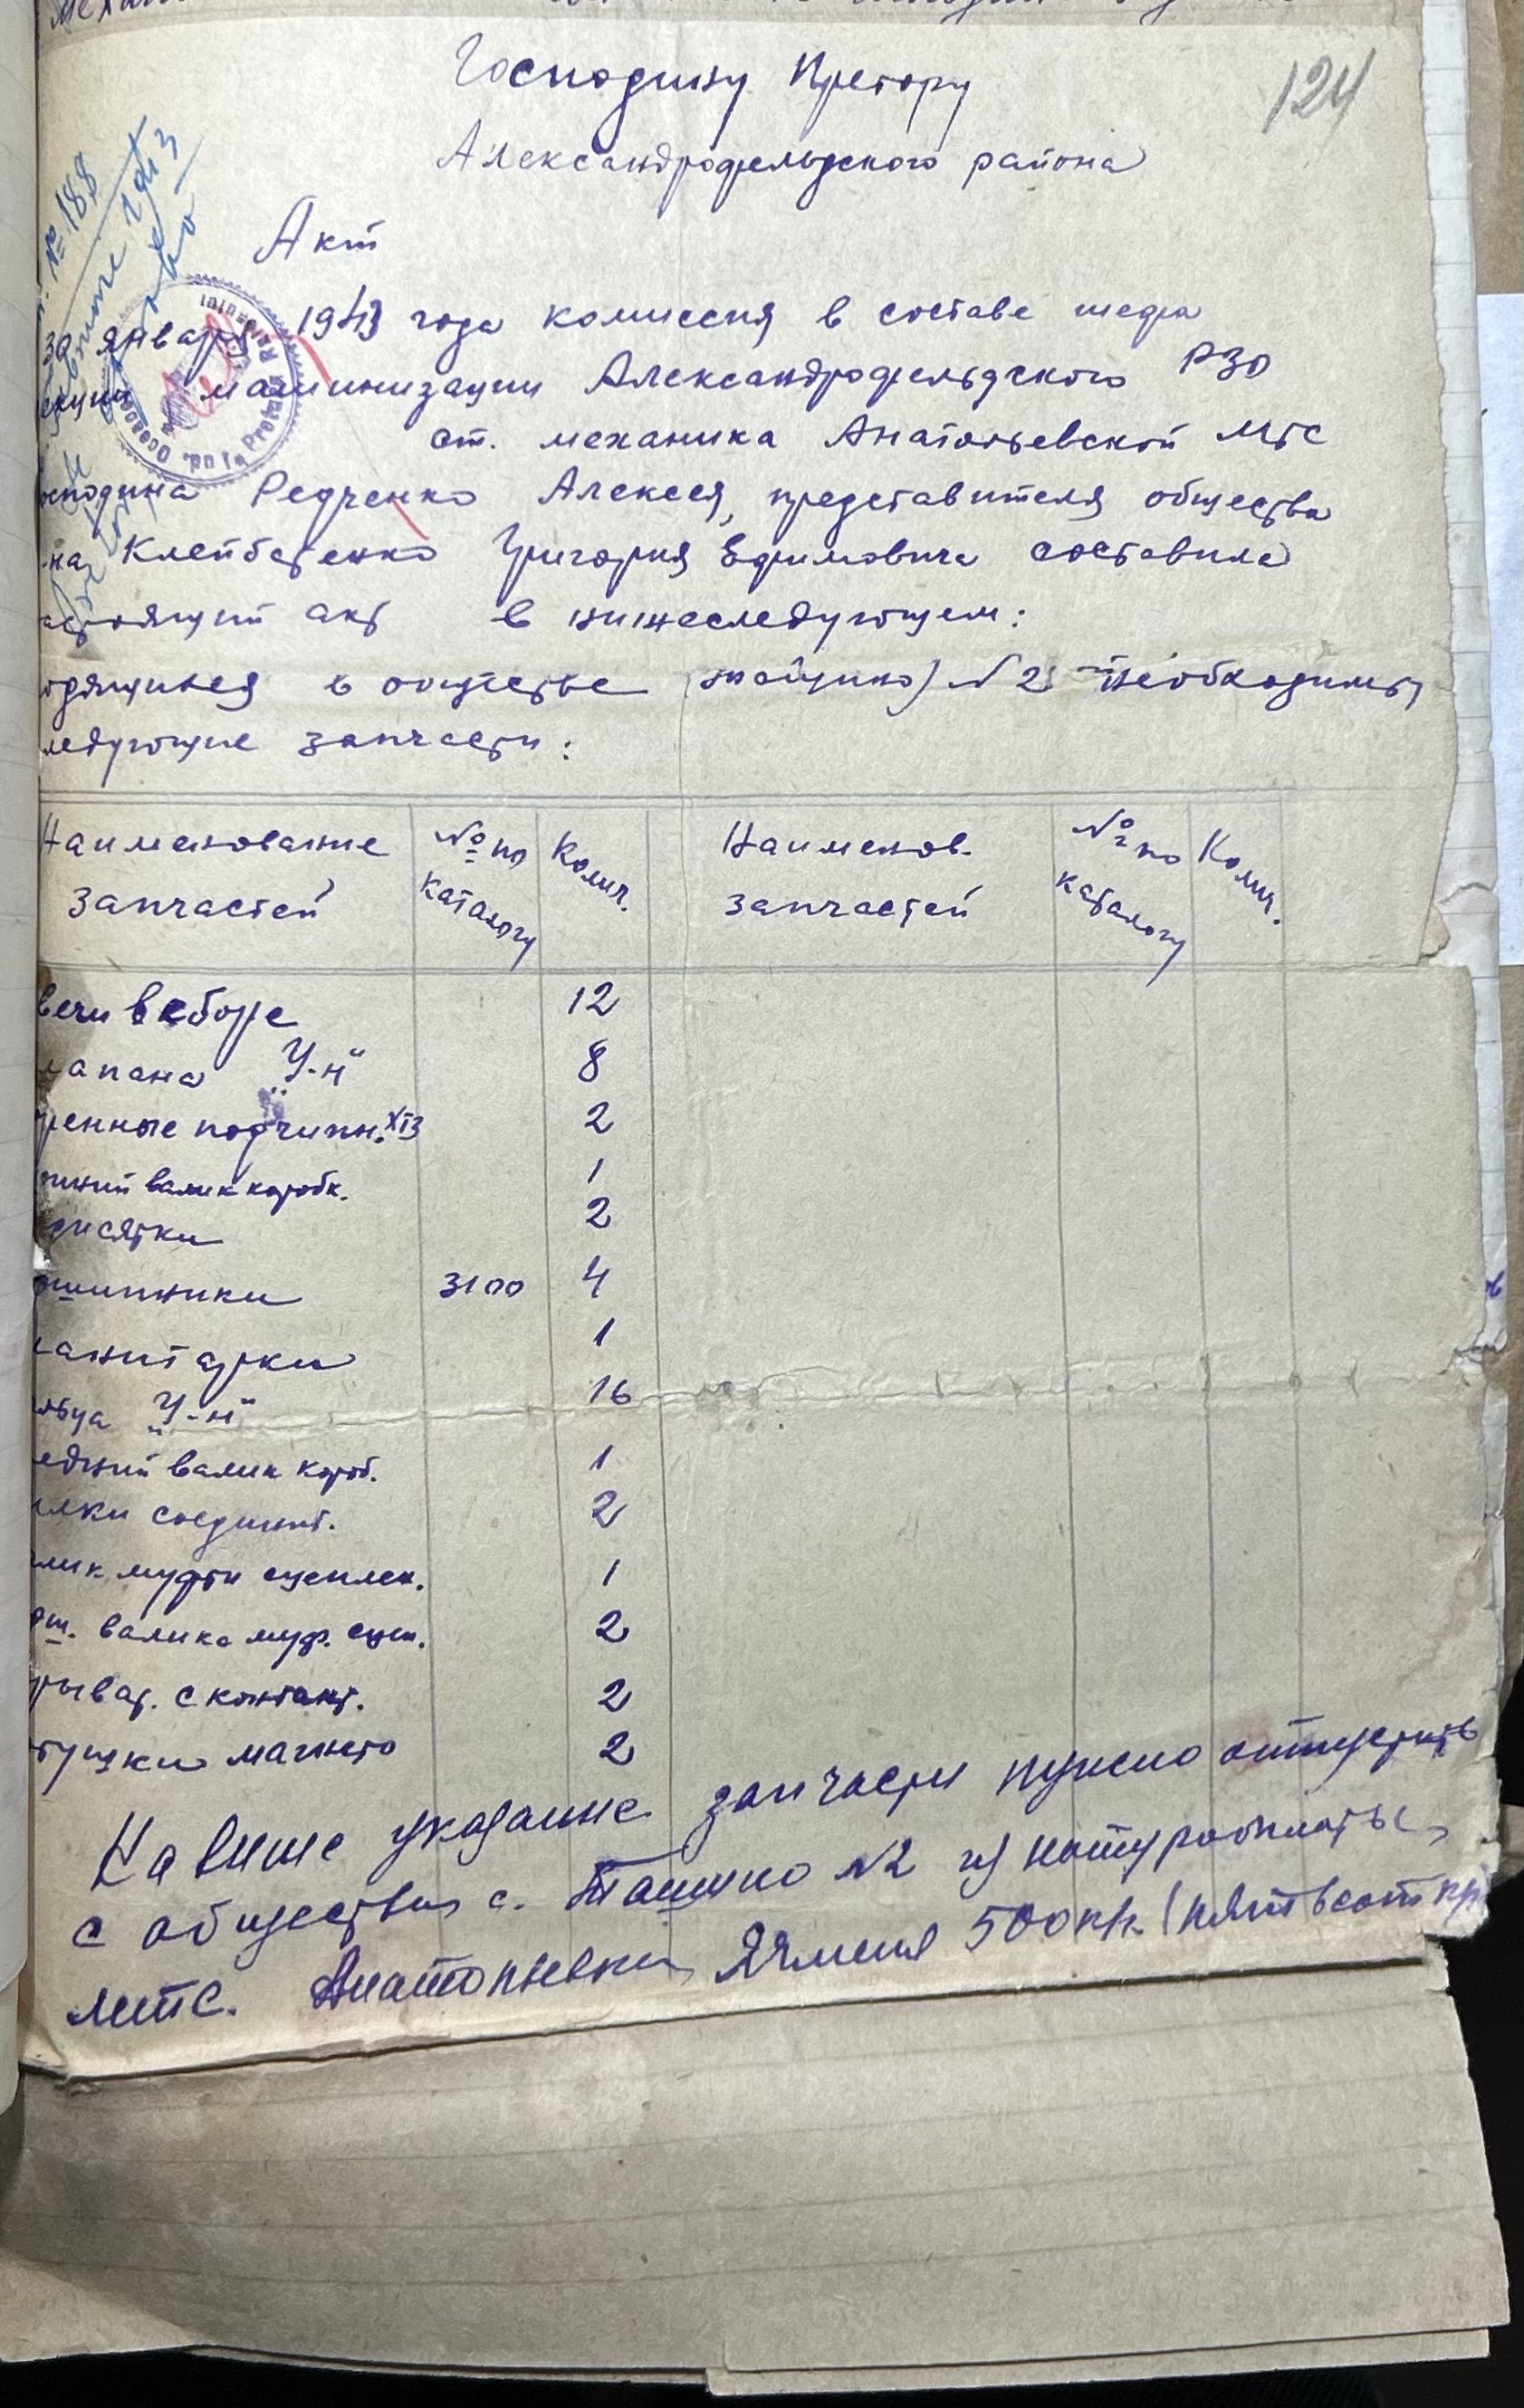 124
Господину Претору
Александрофельдского района
Акт
№ 188
30 января 1943 года комиссия в составе шефа
машинизации Александрофельдского РЗО
ст. механика Анатольевской МТС
осподина Редченко Алексея, представителя общества
на Клейбатенко Григория Ефимовича составила
астоящий акт в нижеследующем:
одящиеся в обществе №2 необходимы
ледующие запчасти:
Наименование запчастей № по каталогу Колич. Наименов. запчастей № по каталогу Колич.
вечи в сборе 12
лапана "У-Н" 8
ренные подчипн. ХТЗ 2
валик коробк. 1
2
шипники 3100 4
1
льца "У-Н" 16
едний валик короб. 1
илки соединит. 2
лик муфты сцеплен. 1
ош. валика муф. сцеп. 2
рыват. с контакт. 2
тушки магнето 2
На више указание запчасти нужно отпустить
с общества с. Ташино №2 из натуроплаты
мтс. Анатольевки Ячменя 500 кгр. (пятьсот кгр